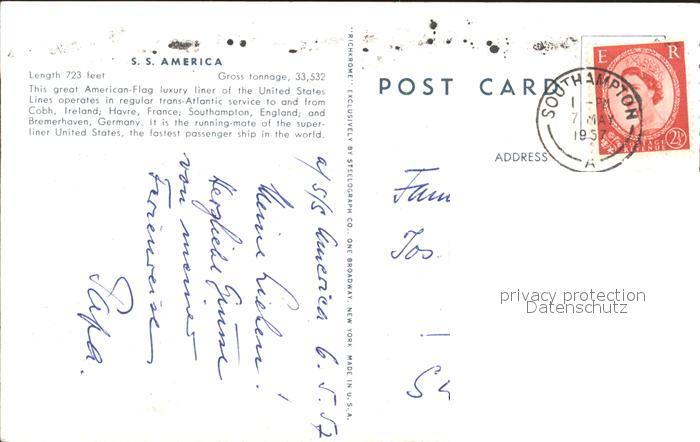 S. S. AMERICA
Length 723 feet Gross tonnage, 33,532
This great American-Flag luxury liner of the United States
Lines operates in regular trans-Atlantic service to and from
Cobh, Ireland; Havre, France; Southampton, England; and
Bremerhaven, Germany. It is the running-mate of the super-
liner United States, the fastest passenger ship in the world.
a/S/S America 6.5.57
Meine Lieben!
Herzliche Grüsse
von meiner
Ferienreise
Papa.
"RICHKROME" EXCLUSIVELY BY STELLOGRAPH CO., ONE BROADWAY, NEW YORK. MADE IN U.S.A.
POST CARD
E R
2½
SOUTHAMPTON
PM
7 MAY
1957
A
ADDRESS
Fam
Jos
privacy protection
Datenschutz